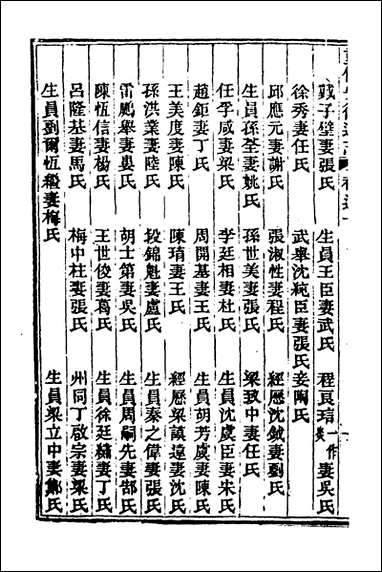 戴子璧妻張氏 生員王臣妻武氏 程良瑄一作炎妻吳氏
徐秀妻任氏 武舉沈統臣妻張氏妾陶氏
邱應元妻謝氏 張淑性妻程氏 經歷沈鉞妻劉氏
生員孫荃妻姚氏 孫世美妻張氏 梁致中妻任氏
任孚咸妻梁氏 李廷相妻杜氏 生員沈虞臣妻宋氏
趙鉅妻丁氏 周開基妻王氏 生員胡芳虞妻陳氏
王美度妻陳氏 陳璸妻王氏 經歷梁議遠妻沈氏
孫洪業妻陸氏 段錦魁妻盧氏 生員秦之偉妻張氏
雷鵬舉妻婁氏 胡士第妻吳氏 生員周嗣先妻郜氏
陳恆信妻楊氏 王世俊妻葛氏 生員徐廷繡妻丁氏
呂隆基妻馬氏 梅中柱妻張氏 州同丁啟宗妻梁氏
生員劉爾恆繼妻梅氏 生員梁立中妻鄭氏